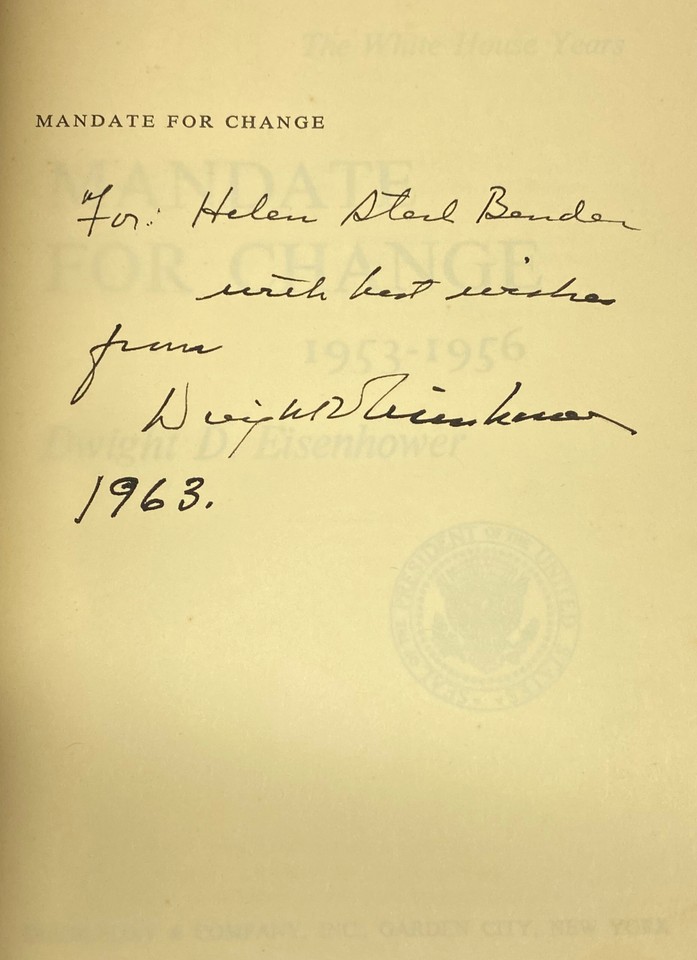 The White House Years
MANDATE FOR CHANGE
MANDATE
FOR CHANGE
For: Helen Steel Bender
with best wishes
from
1953-1956
Dwight D Eisenhower
Dwight D. Eisenhower
1963.
SEAL OF THE PRESIDENT OF THE UNITED STATES
& COMPANY, INC., GARDEN CITY, NEW YORK